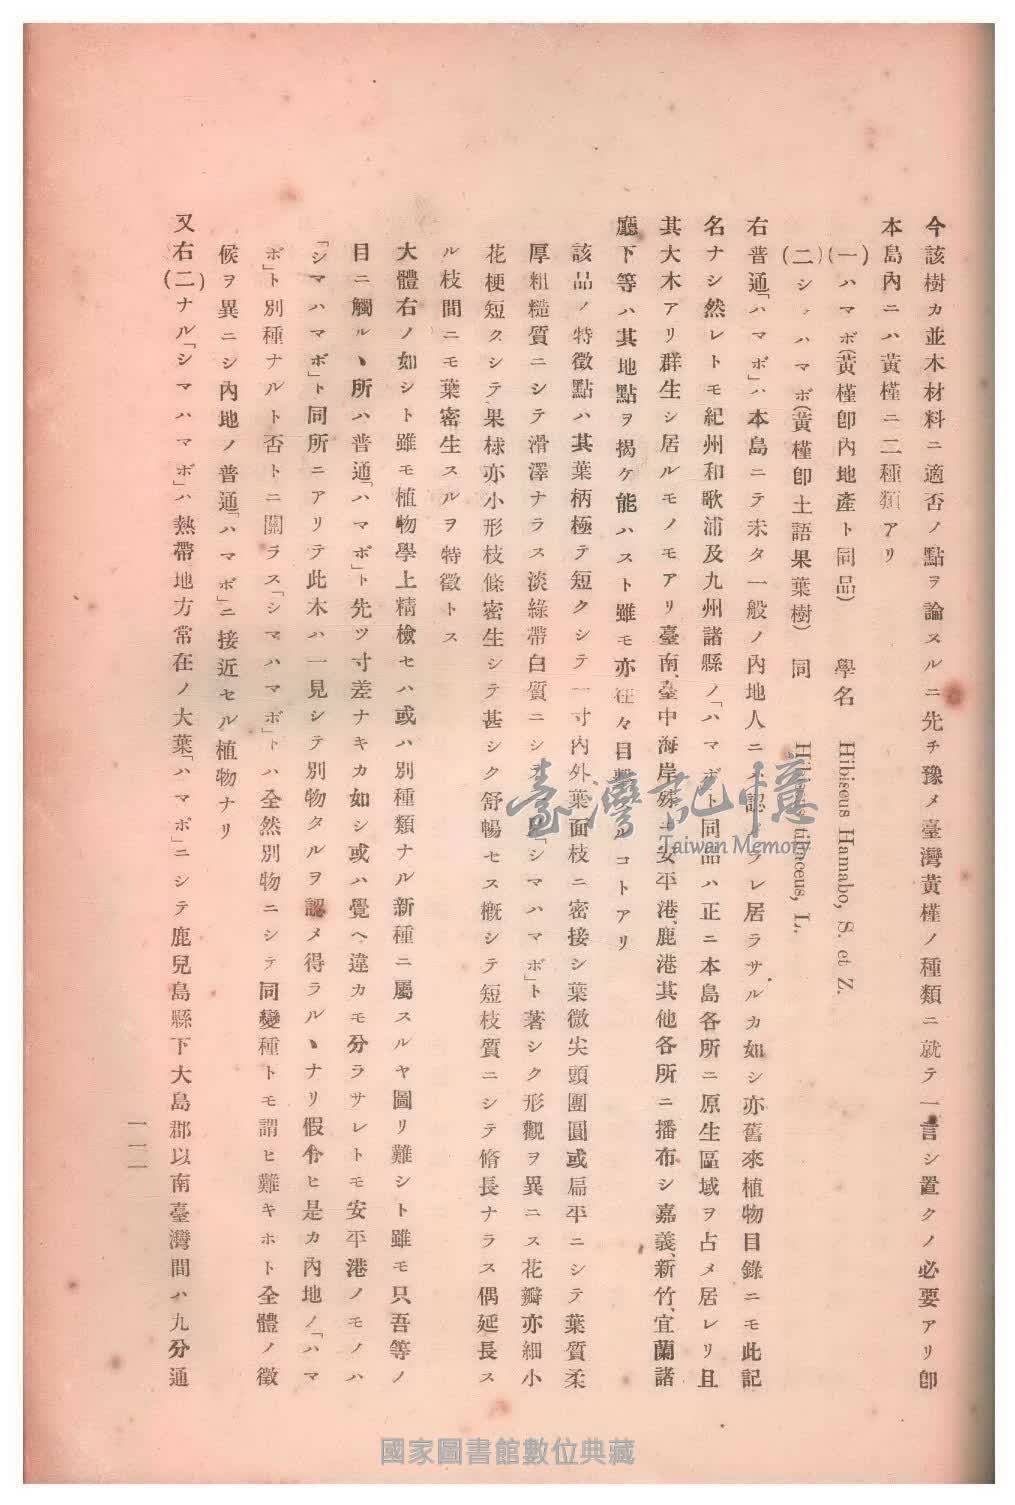 今該樹カ並木材料ニ適否ノ點ヲ論スルニ先チ豫メ臺灣黃槿ノ種類ニ就テ一言シ置クノ必要アリ卽
本島內ニハ黃槿ニ二種類アリ
(一)ハマボ(黃槿卽內地產ト同品) 學名 Hibiscus Hamabo, S. et Z.
(二)シマハマボ(黃槿卽土語果葉樹) 同 Hibiscus tiliaceus, L.
右普通「ハマボ」ハ本島ニテ未タ一般ノ內地人ニハ認メラレ居ラサルカ如シ亦舊來植物目錄ニモ此記
名ナシ然レトモ紀州和歌浦及九州諸縣ノ「ハマボ」ト同品ハ正ニ本島各所ニ原生區域ヲ占メ居レリ且
其大木アリ群生シ居ルモノモアリ臺南、臺中海岸殊ニ安平港、鹿港其他各所ニ播布シ嘉義、新竹、宜蘭諸
廳下等ハ其地點ヲ揭ケ能ハスト雖モ亦往々目擊スルコトアリ
該品ノ特徵點ハ其葉柄極テ短クシテ一寸內外葉面枝ニ密接シ葉微尖頭團圓或扁平ニシテ葉質柔
厚粗糙質ニシテ滑澤ナラス淡綠帶白質ニシテ「シマハマボ」ト著シク形觀ヲ異ニス花瓣亦細小
花梗短クシテ果梂亦小形枝條密生シテ甚シク舒暢セス槪シテ短枝質ニシテ脩長ナラス偶延長ス
ル枝間ニモ葉密生スルヲ特徵トス
大體右ノ如シト雖モ植物學上精檢セハ或ハ別種類ナル新種ニ屬スルヤ圖リ難シト雖モ只吾等ノ
目ニ觸ルヽ所ハ普通「ハマボ」ト先ツ寸差ナキカ如シ或ハ覺ヘ違カモ分ラサレトモ安平港ノモノハ
「シマハマボ」ト同所ニアリテ此木ハ一見シテ別物タルヲ認メ得ラルヽナリ假令ヒ是カ內地ノ「ハマ
ボ」ト別種ナルト否トニ關ラス「シマハマボ」トハ全然別物ニシテ同變種トモ謂ヒ難キホト全體ノ徵
候ヲ異ニシ內地ノ普通「ハマボ」ニ接近セル植物ナリ
又右(二)ナル「シマハマボ」ハ熱帶地方常在ノ大葉「ハマボ」ニシテ鹿兒島縣下大島郡以南臺灣間ハ九分通
一一一
臺灣記憶
Taiwan Memory
國家圖書館數位典藏